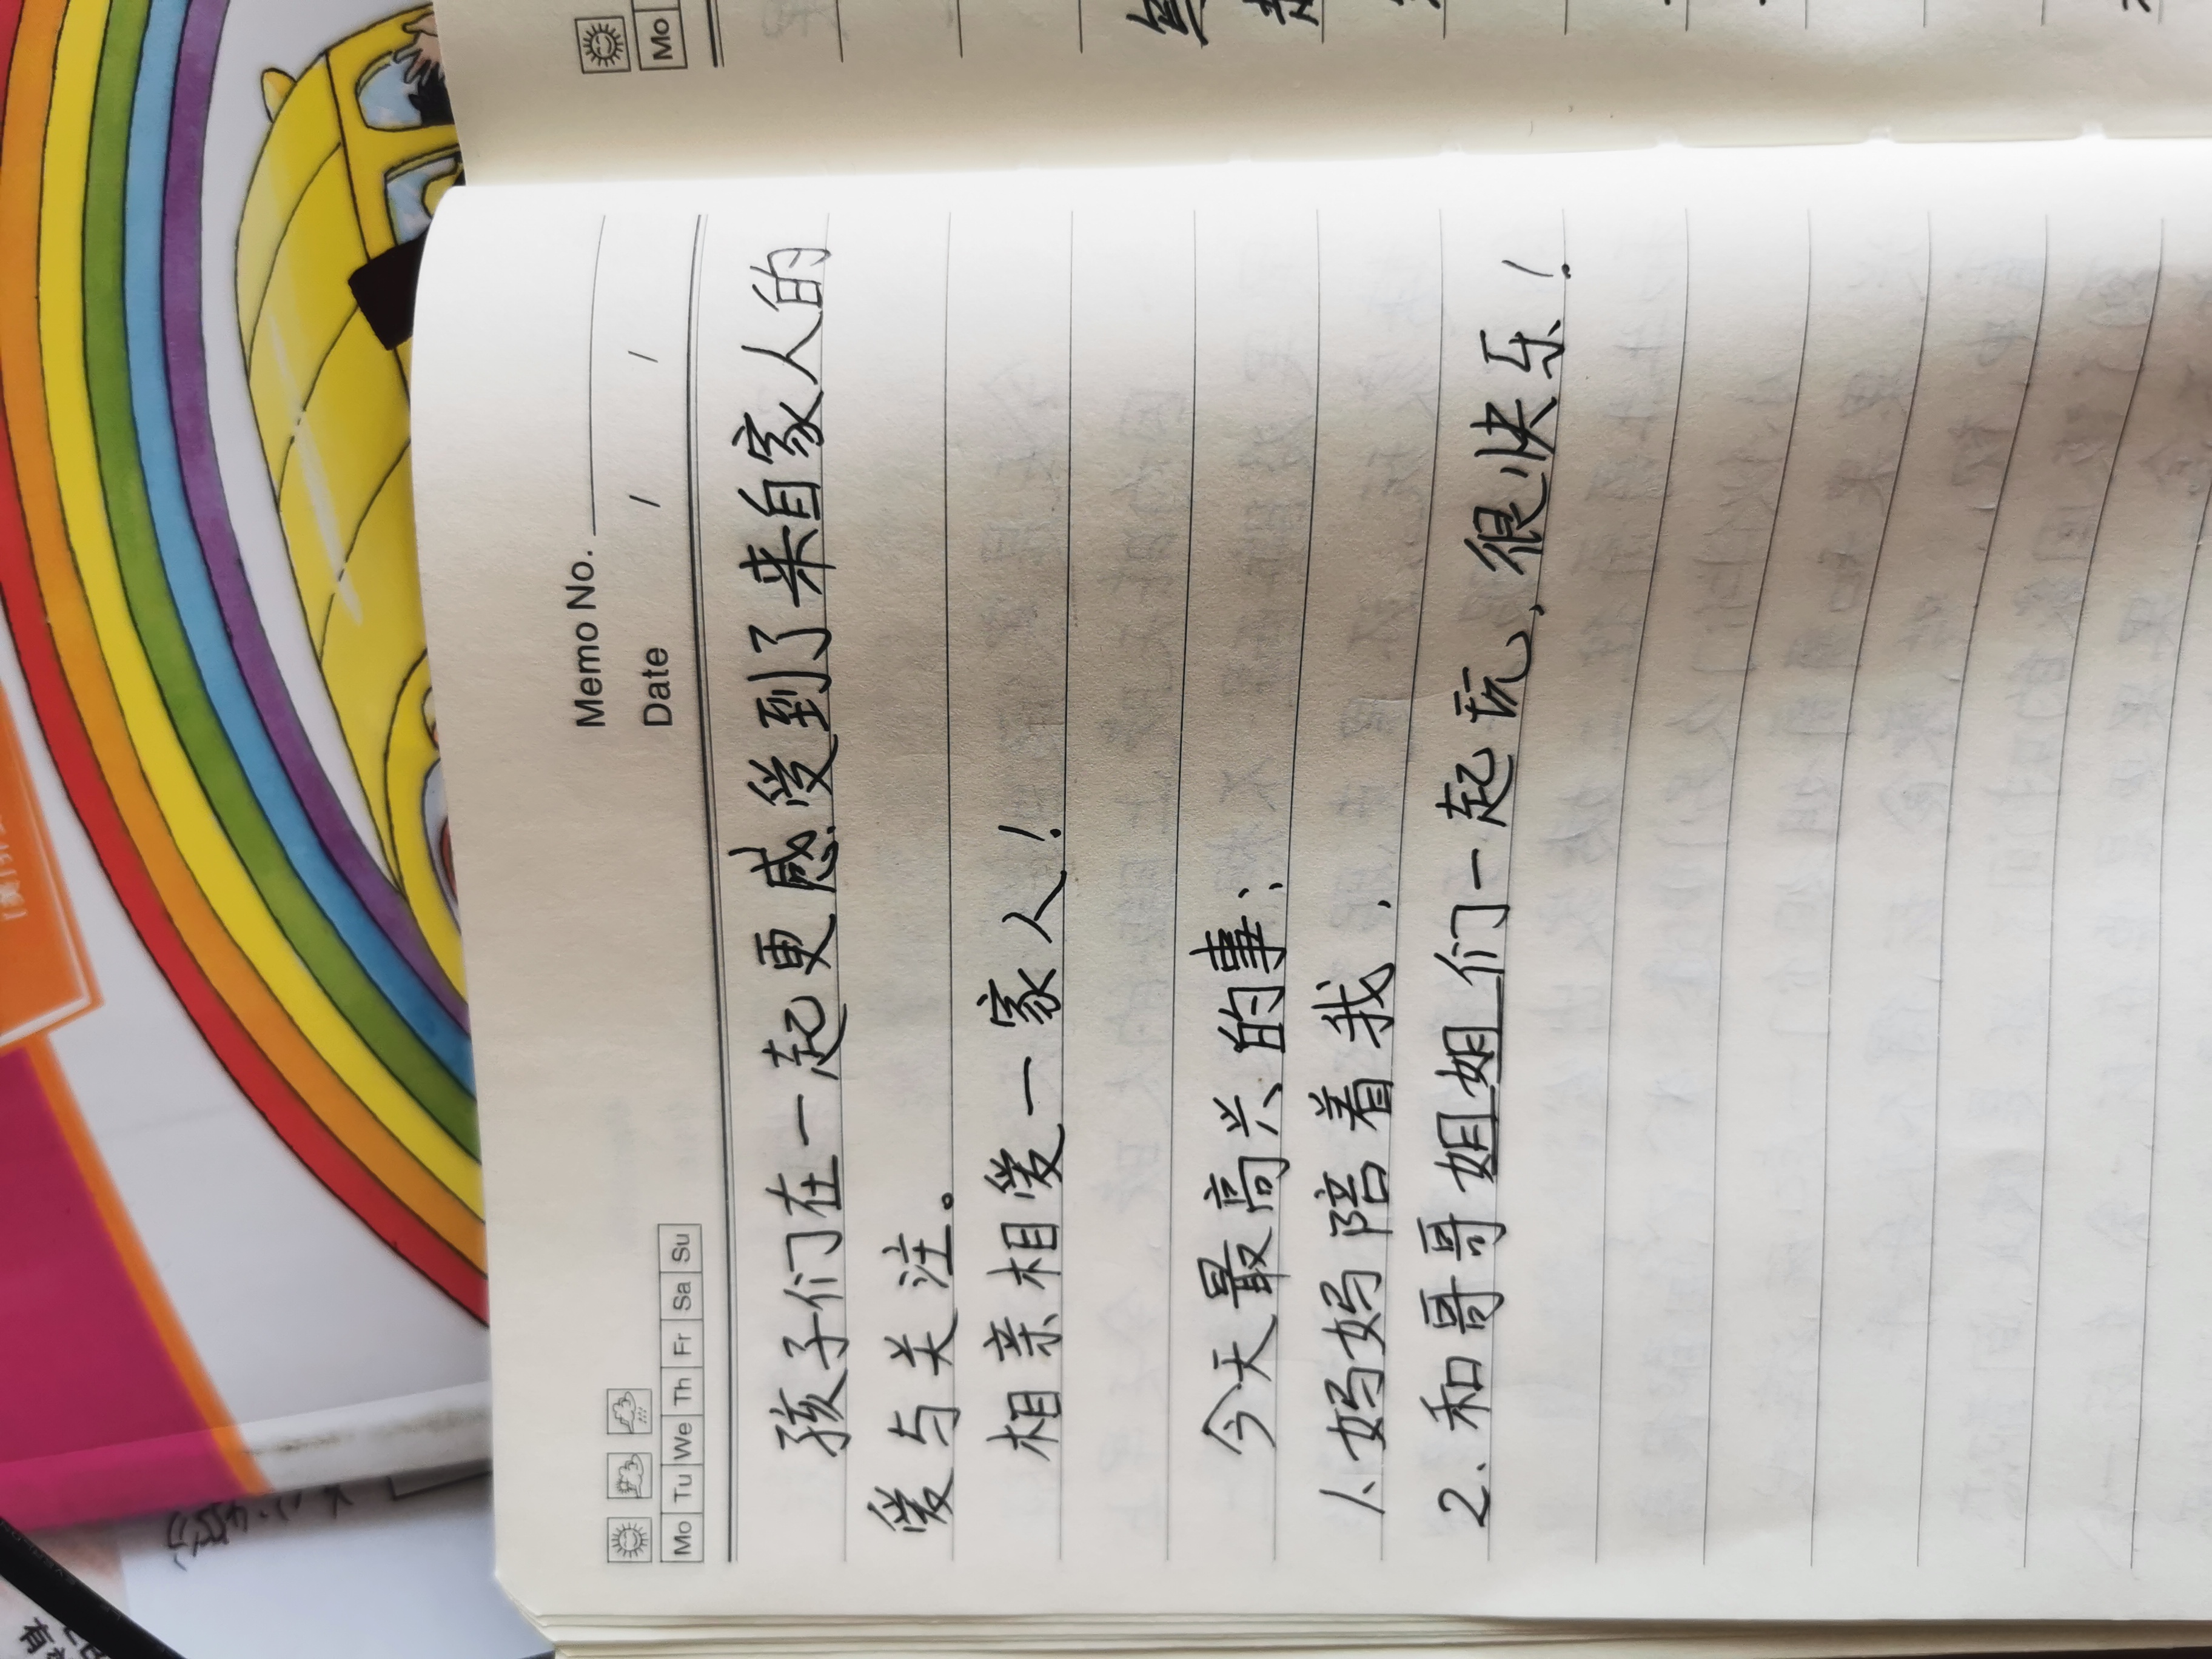 Memo No.
Mo Tu We Th Fr Sa Su
Date / /
孩子们在一起更感受到了来自家人的
爱与关注。
相亲相爱一家人!
今天最高兴的事:
1、妈妈陪着我,
2、和哥哥姐姐们一起玩,很快乐!
Mo